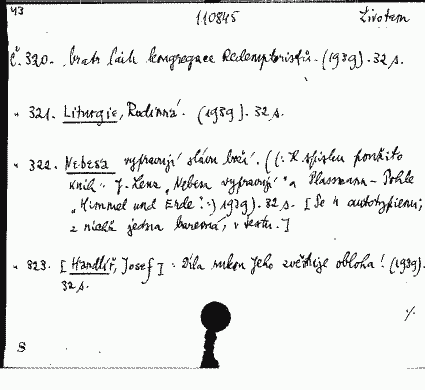 43 110845 Životem
č. 320. bratr laik kongregace Redemptoristů. (1939). 32 s.
" 321. Liturgie, Rodinná. (1939). 32 s.
" 322. Nebesa vypravují slávu boží. ((: K spisku použito
knih: J. Lenz „Nebesa vypravují" a Plassmann - Pohle
„Himmel und Erde":) 1939). 32 s. [Se 4 autotypiemi,
z nichž jedna barevná, v textu.]
" 323. [Handlíř, Josef]: Díla rukou Jeho zvěstuje obloha! (1939).
32 s.
%
S